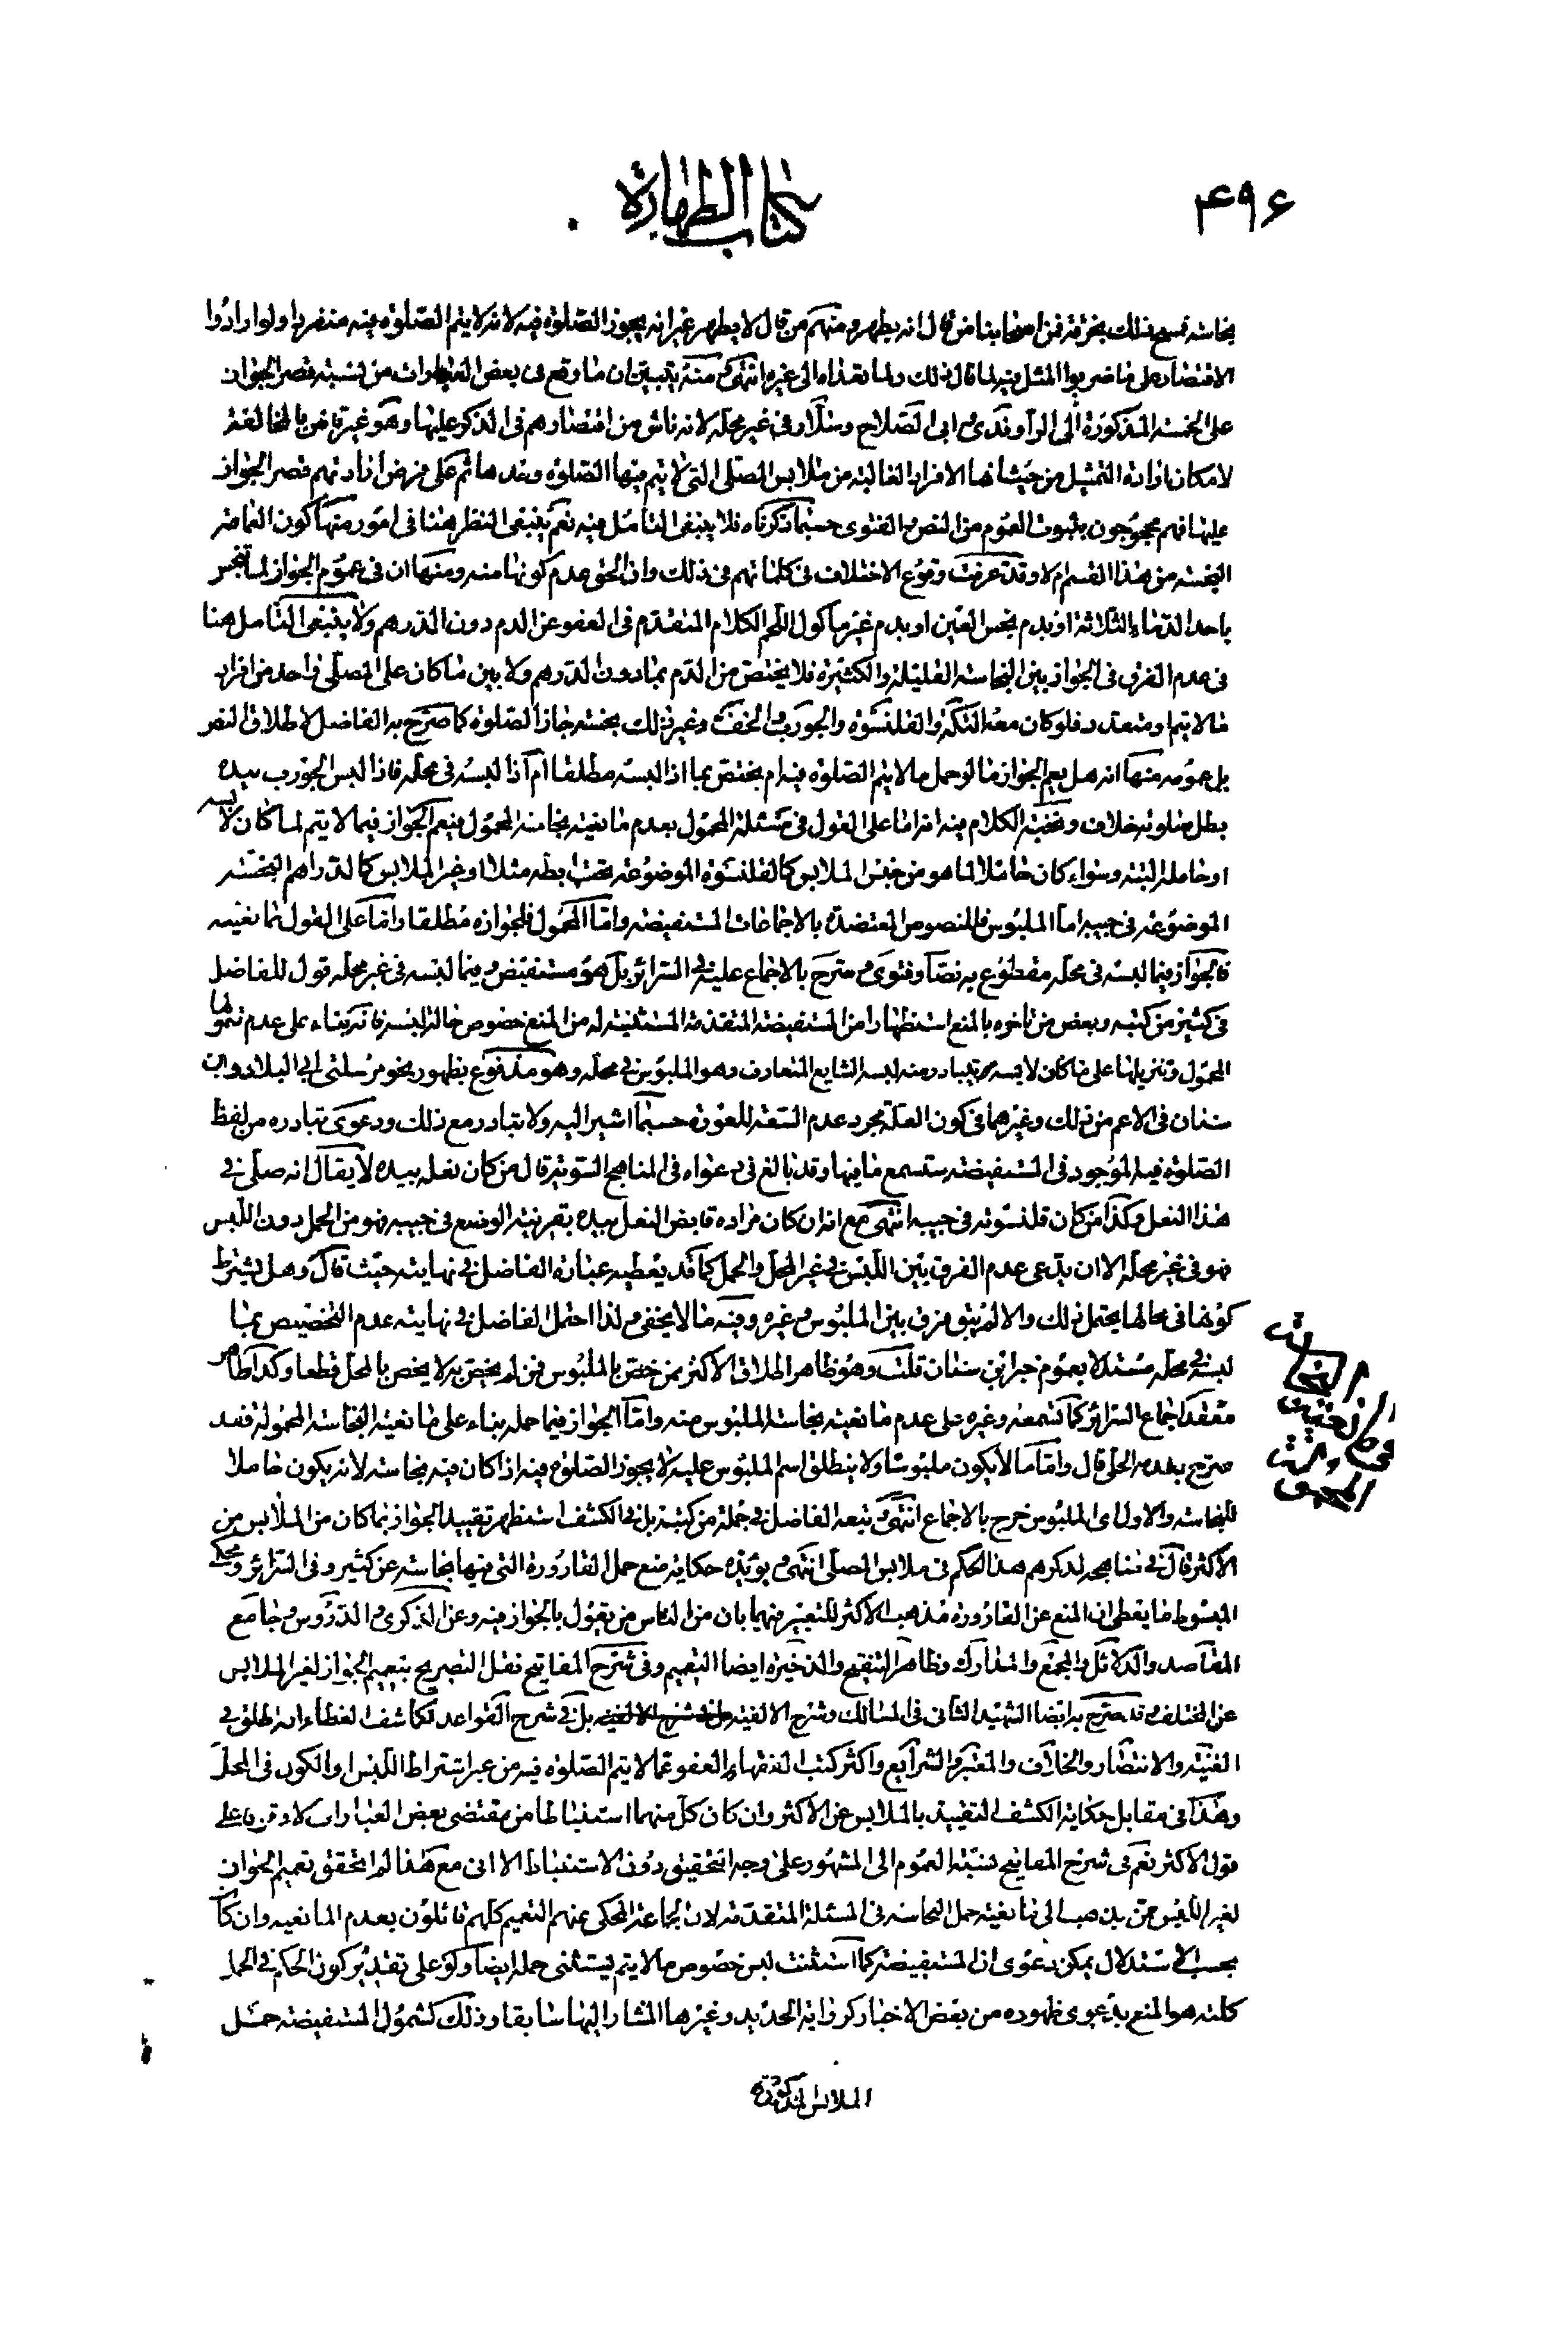 ۴۹۶
كتاب الطهارة
نجاسة فمسح ذلك بخرقة فمن اصحابنا من قال انه يطهر و منهم من قال لا يطهر غير انه يجوز الصّلوة فيه لانه لا يتم الصّلوة فيه منفردا و لو ارادوا
الاقتصار على ما ضربوا المثل فيه لما قال ذلك و لما تعداه الى غيره انتهى و منه يتبين ان ما وقع فى بعض العبارات من نسبة قصر الجواز
على الخمسة المذكورة الى الراوندى و ابى الصّلاح و سلّار فى غير محلّه لانه ناش من اقتصارهم فى الذكر عليها و هو غير قاض بالمخالفة
لامكان ارادة التمثيل من حيث انها الافراد الغالبة من ملابس المصلّى التى لا يتم فيها الصّلوة وحدها ثم على فرض ارادتهم قصر الجواز
عليها فهم محجوجون بثبوت العموم من النص و الفتوى حسبما ذكرناه فلا ينبغى التامّل فيه نعم ينبغى النظر هنا فى امور منها كون العمامة
النجسة من هذا القسم ام لا و قد عرفت وقوع الاختلاف فى كلماتهم فى ذلك و ان الحق عدم كونها منه و منها ان فى عموم الجواز لما تنجس
باحد الدماء الثلاثة او بدم نجس العين او بدم غير مأكول اللّحم الكلام المتقدّم فى العفو عن الدم دون الدرهم و لا ينبغى التامل هنا
فى عدم الفرق فى الجواز بين النجاسة القليلة و الكثيرة فلا يختص من الدّم بما دون الدّرهم و لا بين ما كان على المصلّى واحد من افراد
ما لا يتم او متعدد فلو كان معه التكّة و القلنسوة و الجورب و الخف و غير ذلك نجسة جاز الصّلوة كما صرّح به الفاضل لاطلاق النص
بل عمومه منها انه هل يعم الجواز ما لو حمل ما لا يتم الصّلوة فيه ام يختص بما اذا لبسه مطلقا ام اذا لبسه فى محلّه فاذا لبس الجورب بيده
بطل صلوته خلاف و نخبة الكلام فيه انه اما على القول فى مسئلة المحمول بعدم مانعية نجاسة المحمول فيعم الجواز فيما لا يتم لما كان لابسه
او حاملا البتة و سواء كان حاملا لما هو من جنس الملابس كالقلنسوة الموضوعة تحت ابطه مثلا او غير الملابس كالدراهم النجسة
الموضوعة فى جيبه اما الملبوس فللنصوص المعتضدة بالاجماعات المستفيضة و اما المحمول فلجوازه مطلقا و اما على القول بمانعيته
فالجواز فيما لبسه فى محلّه مقطوع به نصّا و فتوى و صرّح بالاجماع عليه فى السرائر بل هو مستفيض و فيما لبسه فى غير محلّه قول للفاضل
فى كثير من كتبه و بعض من تاخره بالمنع استظهارا من المستفيضة المتقدمة المستثنية له من المنع خصوص حالة لبسه فانه بناء على عدم شمولها
المحمول و تنزيلها على ما كان لابسه يتبادر منه لبسه الشايع المتعارف و هو الملبوس فى محلّه و هو مدفوع بظهور نحو مرسلتى ابى البلاد و ابن
سنان فى الاعم من ذلك و غيرهما فى كون العلّة مجرد عدم السّعة للعورة حسبما اشير اليه و لا تبادر مع ذلك و دعوى تبادره من لفظ
الصّلوة فيه الموجود فى المستفيضة ستسمع ما فيها و قد بالغ فى دعواه فى المناهج السّويّة قال من كان نعله بيده لا يقال انه صلّى فى
هذا النعل و كذا من كان قلنسوته فى جيبه انتهى مع انه ان كان مراده قابض النعل بيده بقرينة الوضع فى جيبه فهو من الحمل دون اللّبس
فهو فى غير محلّه الا ان يدّعى عدم الفرق بين اللّبس فى غير المحل و الحمل كما قد يعطيه عبارة الفاضل فى نهايته حيث قال و هل يشترط
كونها فى محالها يحتمل ذلك و الا لم يبق فرق بين الملبوس و غيره و فيه ما لا يخفى و لذا احتمل الفاضل فى نهايته عدم التخصيص بما
لبسه فى محلّه مستدلا بعموم خبر ابن سنان قلت و هو ظاهر اطلاق الاكثر ممن خصّ بالملبوس فمن لم يخص به لا يخص بالمحل قطعا و كذا ظاهر
معقد اجماع السرائر كما تسمعه و غيره على عدم مانعية نجاسة الملبوس منه و اما الجواز فيما حمله بناء على مانعية النجاسة المحمولة فقد
صرّح بعدمه الحلى قال و اما ما لا يكون ملبوسا و لا ينطلق اسم الملبوس عليه لا يجوز الصلوة فيه اذا كان فيه نجاسة لانه يكون حاملا
للنجاسة و الاول اى الملبوس خرج بالاجماع انتهى و تبعه الفاضل فى جملة من كتبه بل فى الكشف استظهر تقييد الجواز بما كان من الملابس من
الاكثر قال فى مناهجه لذكرهم هذا الحكم فى ملابس المصلّى انتهى و يؤيده حكاية منع حمل القارورة التى فيها نجاسة عن كثير و فى السّرائر و محكى
المبسوط ما يعطى ان المنع عن القارورة مذهب الاكثر للتعبير فيهما بان من الناس من يقول بالجواز فيه و عن الذكرى و الدّروس و جامع
المقاصد و الدلائل و المجمع و المدارك و ظاهر التنقيح و الذخيرة ايضا التعميم و فى شرح المفاتيح نقل التصريح بتعميم الجواز لغير الملابس
عن المختلف و قد صرّح به ايضا الشهيد الثانى فى المسالك و شرح الالفية بل فى شرح القواعد لكاشف الغطاء انه اطلق فى
الغنية و الانتصار و الخلاف و المعتبر و الشرايع و اكثر كتب الفقهاء العفو عما لا يتم الصّلوة فيه من غير اشتراط اللّبس او الكون فى المحلّ
و هذا فى مقابل حكاية الكشف التقييد بالملابس عن الاكثر و ان كان كلّ منهما استنباطا من مقتضى بعض العبارات لا وقوفا على
قول الاكثر نعم فى شرح المفاتيح نسبة العموم الى المشهور على وجه التحقيق دون الاستنباط الا انى مع هذا لم اتحقق تعميم الجواز
لغير اللّبس ممن يذهب الى مانعية حمل النجاسة فى المسئلة المتقدّمة لان الجماعة المحكى عنهم التعميم كلّهم قائلون بعدم المانعية و ان كان
بحسب الاستدلال يمكن دعوى ان المستفيضة كما استثنت لبس خصوص ما لا يتم يستثنى حمله ايضا و لو على تقدير كون الحكم فى الحمل
كلية هو المنع بدعوى ظهوره من بعض الاخبار كرواية الحديد و غيرها المشار اليها سابقا و ذلك لشمول المستفيضة حمل
الملابس المذكورة